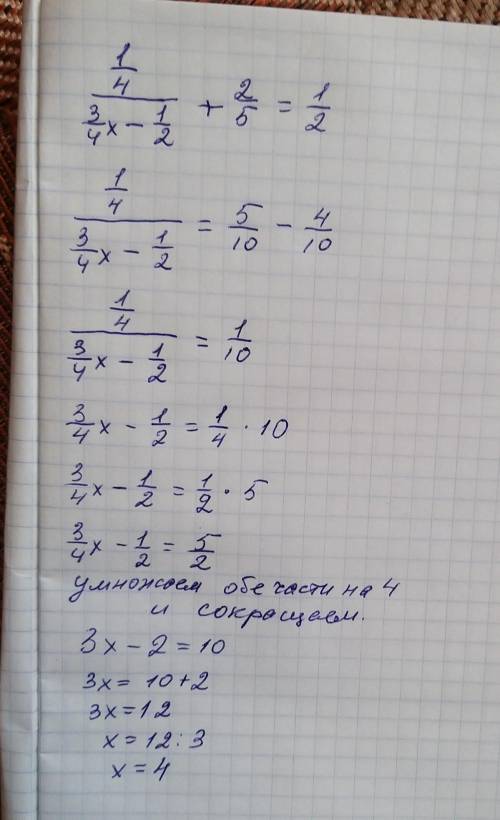 1/4 / (3/4 x − 1/2) + 2/5 = 1/2
1/4 / (3/4 x − 1/2) = 5/10 − 4/10
1/4 / (3/4 x − 1/2) = 1/10
3/4 x − 1/2 = 1/4 · 10
3/4 x − 1/2 = 1/2 · 5
3/4 x − 1/2 = 5/2
умножаем обе части на 4
и сокращаем.
3x − 2 = 10
3x = 10 + 2
3x = 12
x = 12 : 3
x = 4